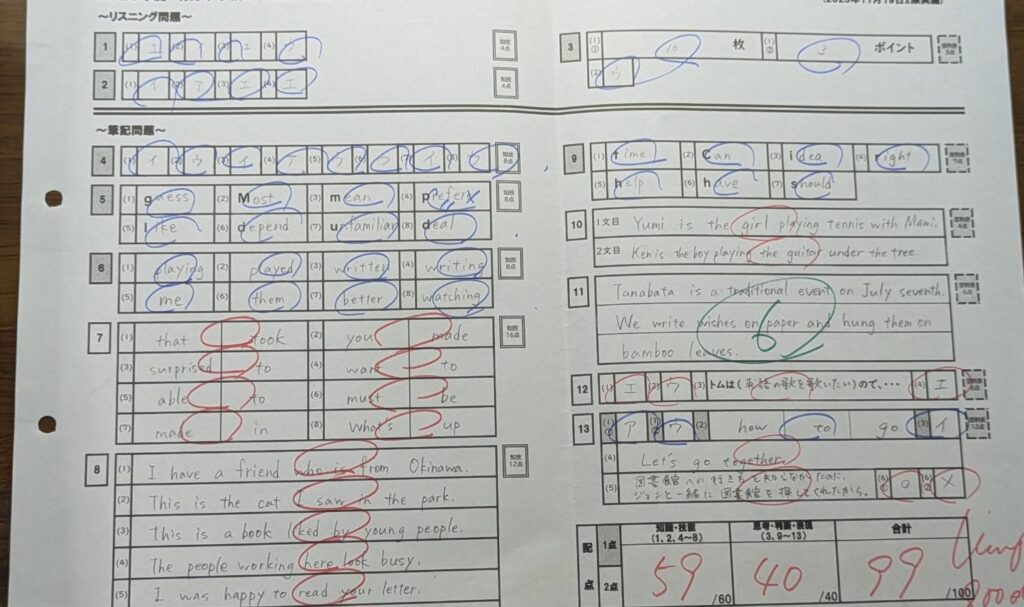 ～リスニング問題～
1 (1) エ (2) イ (3) エ (4) ウ 知技 4点
2 (1) イ (2) ア (3) エ (4) エ 知技 4点
3 (1)① 10 枚 (1)② 3 ポイント
(2) ウ
～筆記問題～
4 (1) イ (2) ウ (3) イ (4) エ (5) ウ (6) ウ (7) イ (8) ウ 知技 8点
5 (1) guess (2) Most (3) mean (4) prefer 知技 8点
(5) like (6) depend (7) unfamiliar (8) deal
6 (1) playing (2) played (3) written (4) writing 知技 8点
(5) me (6) them (7) better (8) watching
7 (1) that took (2) you made 知技 16点
(3) surprised to (4) want to
(5) able to (6) must be
(7) made in (8) What's up
8 (1) I have a friend who is from Okinawa. 知技 12点
(2) This is the cat I saw in the park.
(3) This is a book liked by young people.
(4) The people working here look busy.
(5) I was happy to read your letter.
9 (1) time (2) Can (3) idea (4) right
(5) help (6) have (7) should
10 1文目 Yumi is the girl playing tennis with Mami.
2文目 Ken is the boy playing the guitar under the tree.
11 Tanabata is a traditional event on July seventh.
We write wishes on paper and hung them on
bamboo leaves.
6
12 (1) エ (2) ウ (3) トムは（英語の歌を歌いたい）ので、･･･ (4) エ
13 (1)① ア (1)② ウ (2) how to go (3) イ
(4) Let's go together.
(5) 図書館への行き方を知らなかったのに、
ジョンと一緒に図書館を探してくれたから。
(6)① O (6)② X
配点 1点 2点
知識・技能 (1、2、4～8) 思考・判断・表現 (3、9～13) 合計
59 /60 40 /40 99 /100